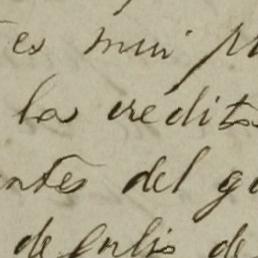 es mui
la credito
entes del g
de Julio de